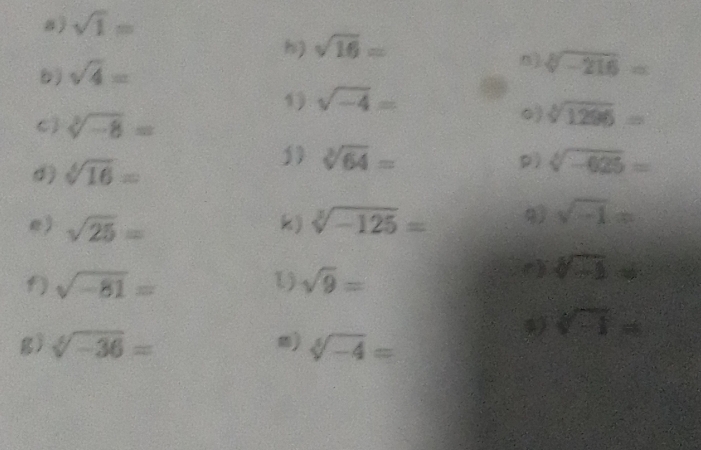 a) √1 =
b) √4 =
c) ∛-8 =
d) ∜16 =
e) √25 =
f) √-81 =
g) ∜-36 =
h) √16 =
i) √-4 =
j) ∛64 =
k) ∛-125 =
l) √9 =
m) ∜-4 =
n) ∛-216 =
o) ∜1296 =
p) ∜-625 =
q) √-1 =
r) -1 =
s) -1 =